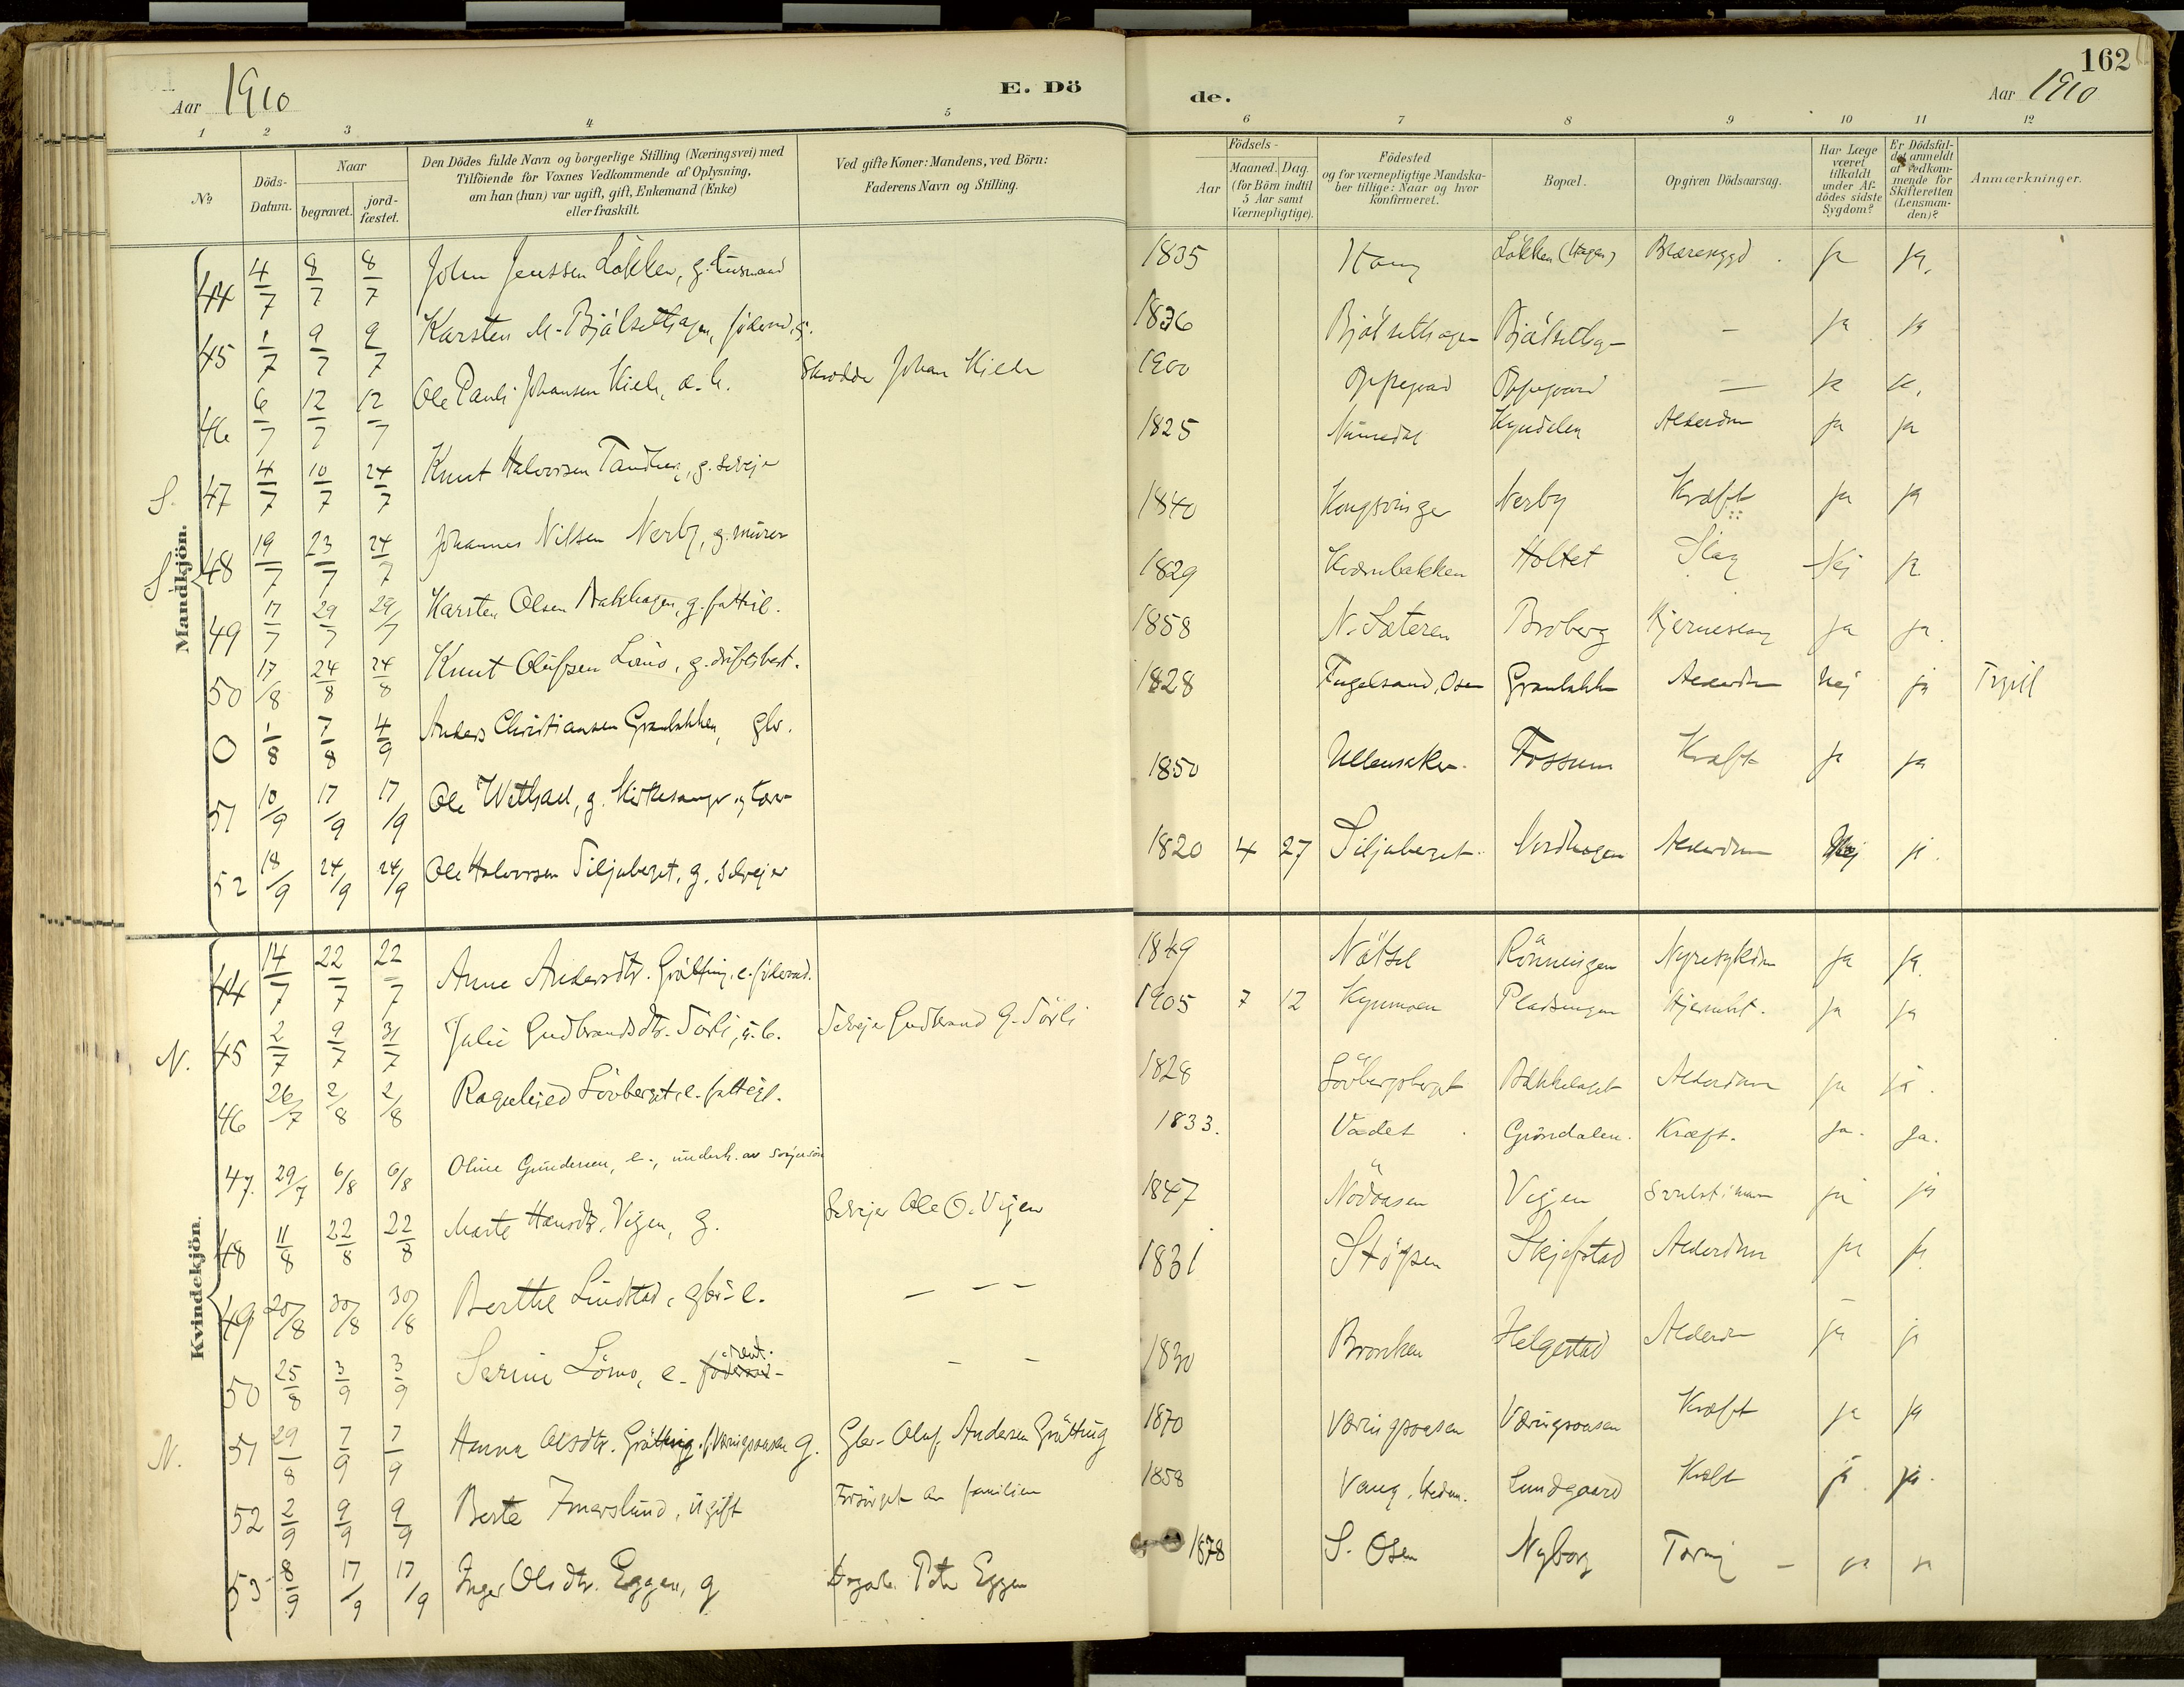 162
Aar 1910
E. Dö
de.
Aar 1910
1 2 3 4 5 6 7 8 9 10 11 12
No Döds-Datum. Naar begravet. jord-fæstet. Den Dödes fulde Navn og borgerlige Stilling (Næringsvei) med Tilföiende for Voxnes Vedkommende af Oplysning, om han (hun) var ugift, gift, Enkemand (Enke) eller fraskilt. Ved gifte Koner: Mandens, ved Börn: Faderens Navn og Stilling. Födsels- Aar Maaned. Dag. (for Börn indtil 5 Aar samt Værnepligtige). Födested og for værnepligtige Mandskaber tillige: Naar og hvor konfirmeret. Bopæl. Opgiven Dödsaarsag. Har Læge været tilkaldt under Afdödes sidste Sygdom? Er Dödsfaldet anmeldt af Vedkommende for Skifteretten (Lensmanden)? Anmærkninger.
Mandkjön.
44 4/7 8/7 8/7 John Jenssen Løkken, g. husmand 1835 Løkken (Hagen) ja ja.
45 1/7 9/7 9/7 Karsten M. Bjålsethagen, føderaad, g. 1836 Bjålsethagen Bjålsethag - ja ja
46 6/7 12/7 12/7 Ole Pauli Johansen Kiela Johan Kiela 1900 Oppegaard Oppegaard — ja
S. 47 4/7 10/7 24/7 Knut Halvorsen, g. selvejer 1825 Numedal Kyndelen Alderdom ja ja
S. 48 19/7 23/7 24/7 Johannes Nilsen Nerby, g. murer 1840 Kongsvinger Nerby Kræft ja ja
49 17/7 29/7 29/7 Karsten Olsen Bakhagen, g. fattigl. 1829 Kværnbakken Holtet Slag Nej ja
50 17/8 24/8 24/8 Knut Olufsen Lømo, g. driftsbest. 1858 N. Sæteren Broberg Hjerneslag ja ja.
0 1/8 7/8 4/9 Anders Christiansen Granbakken, gbr. 1828 Fugelsand, Osen Granbakk Alderdom Nej ja Trysil
51 10/9 17/9 17/9 Ole Wethal, g. Kirkesanger og lærer 1850 Ullensaker Fossum Kræft ja ja
52 18/9 24/9 24/9 Ole Halvorsen Siljuberget, g. selvejer 1820 4 27 Siljuberget Nordhagen Alderdom Nej ja.
Kvindekjön.
44 14/7 22/7 22/7 Anne Andersdtr. Gråtting, e. føderaad. 1849 Nåtsel Rönningen Nyresykdom ja ja.
N. 45 2/7 9/7 31/7 Julie Gudbrandsdtr. Sørli, u.b. Selvejer Gudbrand G. Sørli 1905 7 12 Kynmoen Pladsengen ja ja
46 26/7 2/8 2/8 Ragnhild Lövberget, e. fattigl. 1828 Lövbergsberget Bakkelaget Alderdom ja ja.
47. 29/7 6/8 6/8 Oline Gundersen, e., underh. av svigersön 1833. Vadet Gröndalen. Kræft. Ja. Ja.
48 11/8 22/8 22/8 Marte Hansdtr. Vigen, g. Selvejer Ole O. Vigen 1847 Nödaasen Vigen ja ja
49 20/8 30/8 30/8 Berthe Lindstad, gbr. e. — — — 1831 Støpsen Skjefstad Alderdom ja ja
50 25/8 3/9 3/9 Serine Lömo, e. føderaad rent. — — 1830 Bronken Helgestad Alderdom ja ja
N. 51 29/8 7/9 7/9 Hanna Olsdtr. Gråtting f. Væringsaasen g. Gbr. Oluf Andersen Gråtting 1870 Væringsaasen Væringsaasen Kræft ja ja
52 2/9 9/9 9/9 Berte Imerslund, ugift Forsörget av familien 1858 Vang, Hedm. Lundgaard Kræft ja ja.
53 8/9 17/9 17/9 Inger Olsdtr. Eggen, g Peter Eggen 1878 S. Osen Nyborg Tæring — ja ja